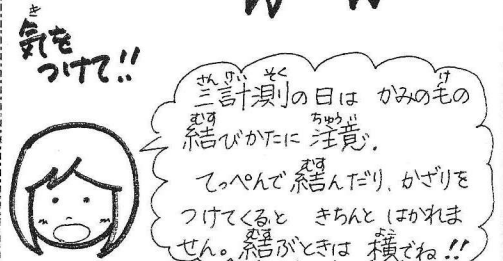 気を
つけて!!
三計測の日は かみの毛の
結びかたに 注意。
てっぺんで 結んだり、かざりを
つけてくると きちんと はかれま
せん。結ぶときは 横でね!!